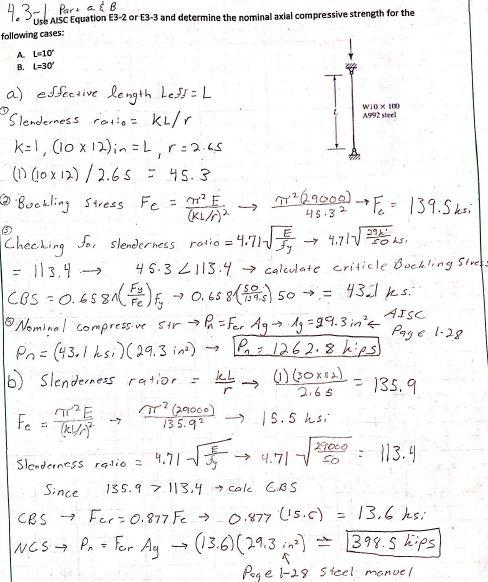 4.3-1 Part a & B
Use AISC Equation E3-2 or E3-3 and determine the nominal axial compressive strength for the
following cases:
A. L=10'
B. L=30'
L
W10 X 100
A992 steel
a) effective length Leff = L
① Slenderness ratio = KL/r
K=1, (10 x 12)in = L, r=2.65
(1)(10x12)/2.65 = 45.3
② Buckling Stress Fe = π²E/(KL/r)² → π²(29000)/45.3² → Fe = 139.5 ksi
③
Checking for slenderness ratio = 4.71√E/fy → 4.71√29k/50 ksi
= 113.4 → 45.3 < 113.4 → calculate criticle Buckling Stress
CBS = 0.658^(Fy/Fe) Fy → 0.658^(50/139.5) 50 → = 43.1 ksi
Nominal compressive str → Pn = Fcr Ag → Ag = 29.3 in² ← AISC
Page 1-28
Pn = (43.1 ksi)(29.3 in²) → Pn = 1262.8 kips
b) Slenderness ratior = kL/r → (1)(30x12)/2.65 = 135.9
Fe = π²E/(kL/r)² → π²(29000)/135.9² → 15.5 ksi
Slenderness ratio = 4.71√E/fy → 4.71√29000/50 = 113.4
Since 135.9 > 113.4 → calc CBS
CBS → Fcr = 0.877 Fe → 0.877 (15.5) = 13.6 ksi
NCS → Pn = Fcr Ag → (13.6)(29.3 in²) = 398.5 kips
Page 1-28 Steel manuel